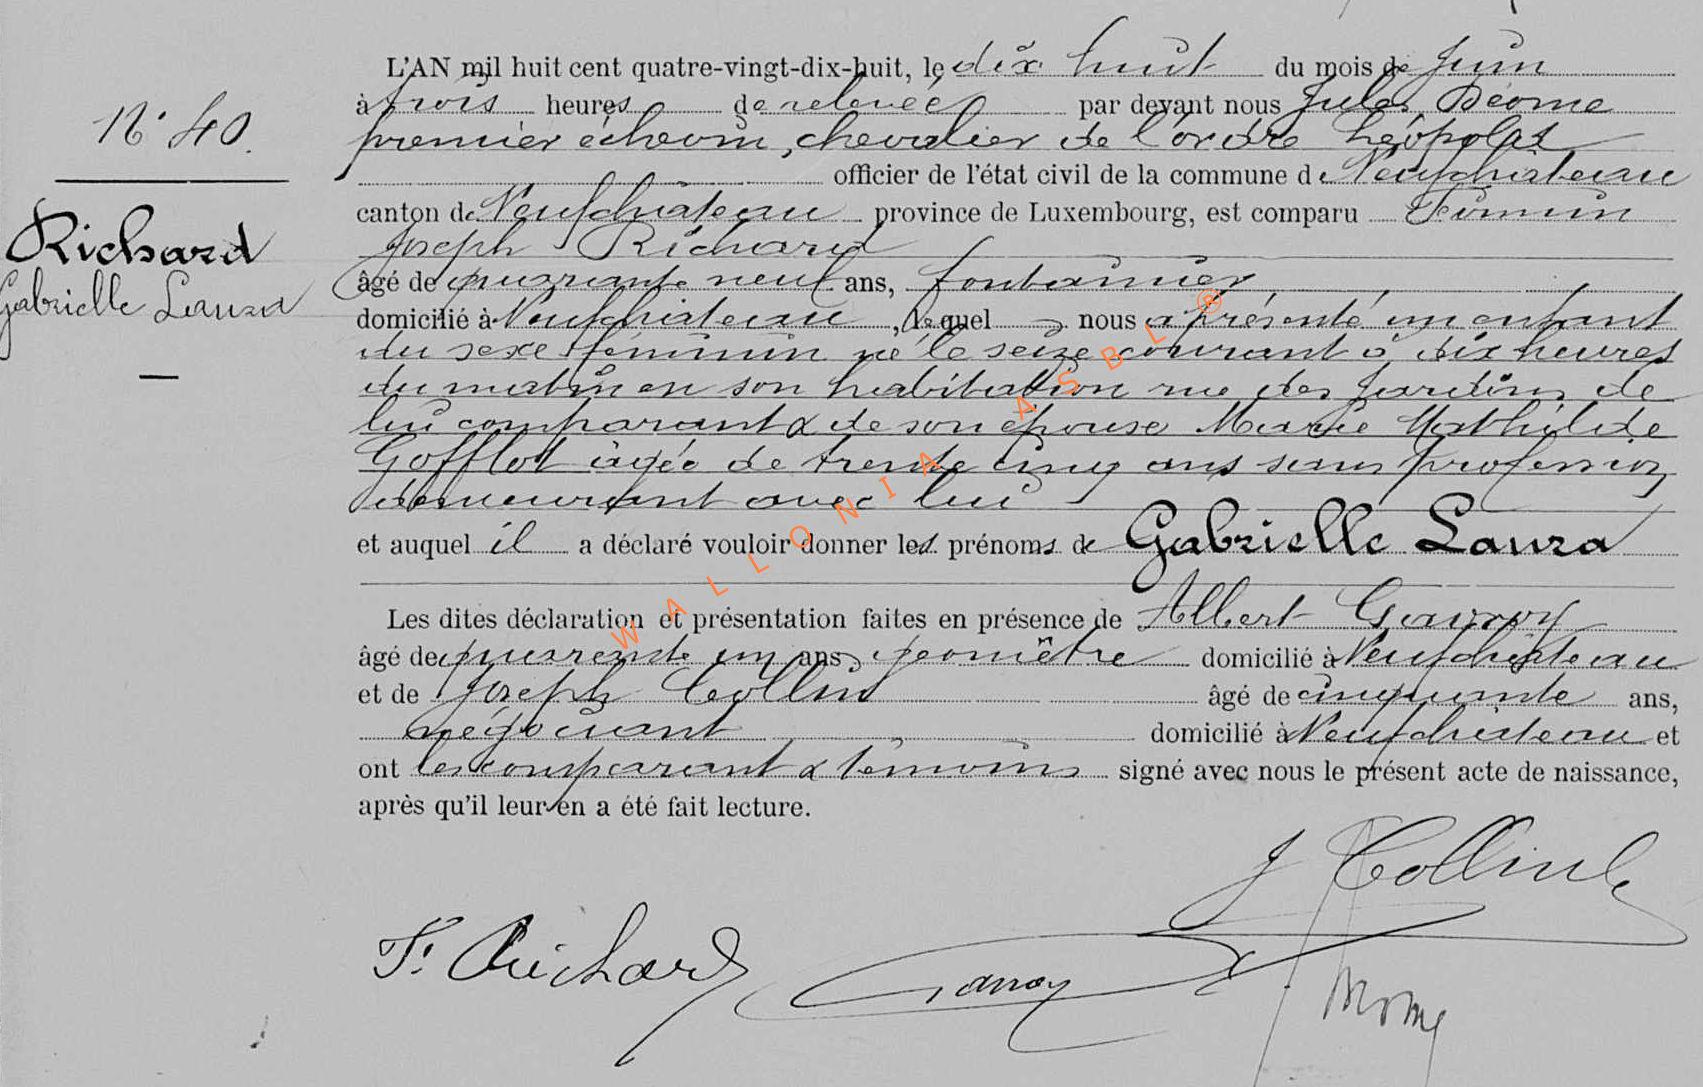 N° 40.
Richard
Gabrielle Laura
L'AN mil huit cent quatre-vingt-dix-huit, le dix huit du mois de Juin
à trois heures de relevée par devant nous Jules Déome
premier échevin, chevalier de l'ordre Léopold
officier de l'état civil de la commune de Neufchâteau
canton de Neufchâteau province de Luxembourg, est comparu Firmin
Joseph Richard
âgé de quarante neuf ans, fontainier
domicilié à Neufchâteau, lequel nous a présenté un enfant
du sexe féminin né le seize courant à dix heures
du matin en son habitation rue des Jardins de
lui comparant & de son épouse Marie Mathilde
Gofflot âgée de trente cinq ans sans profession
demeurant avec lui
et auquel il a déclaré vouloir donner les prénoms de Gabrielle Laura
Les dites déclaration et présentation faites en présence de Albert Gavroy
âgé de quarante un ans, géomètre domicilié à Neufchâteau
et de Joseph Collin âgé de cinquante ans,
négociant domicilié à Neufchâteau et
ont les comparant & témoins signé avec nous le présent acte de naissance,
après qu'il leur en a été fait lecture.
J Collin
F. Richard
Gavroy
WALLONIA ASBL ®